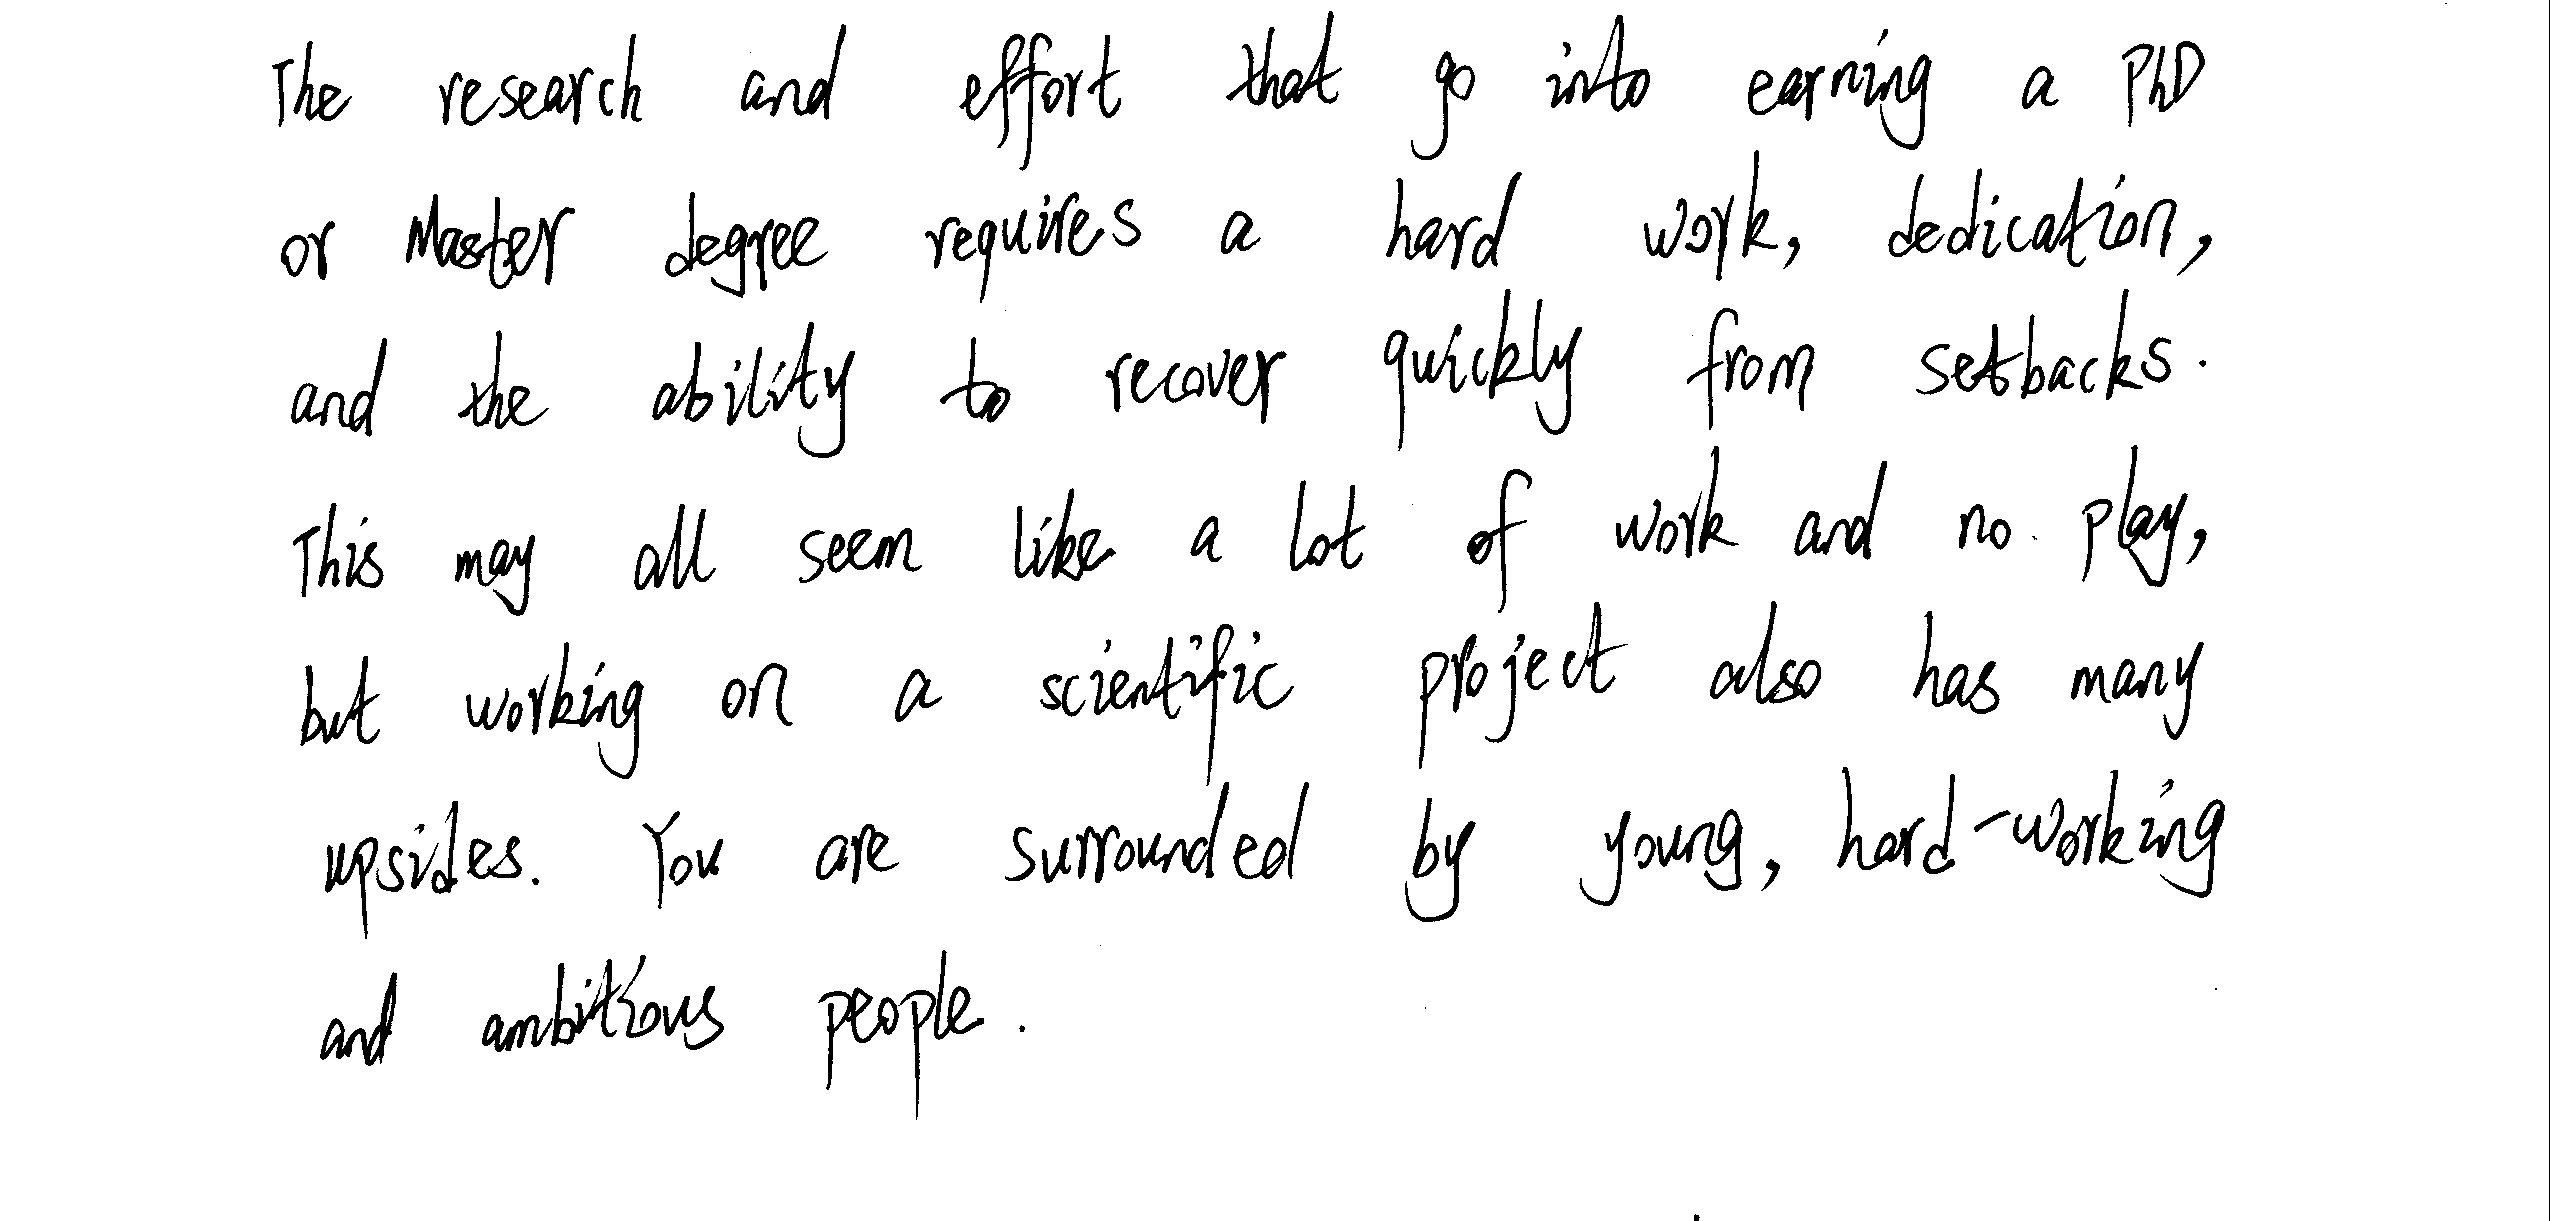 The research and effort that go into earning a PhD
or Master degree requires a hard work, dedication,
and the ability to recover quickly from setbacks.
This may all seem like a lot of work and no play,
but working on a scientific project also has many
upsides. You are surrounded by young, hard-working
and ambitious people.